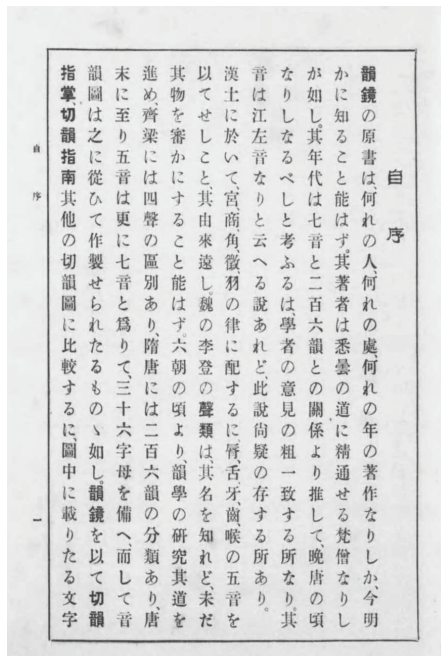 自序
韻鏡の原書は、何れの人、何れの處、何れの年の著作なりしか、今明
かに知ること能はず。其著者は悉曇の道に精通せる梵僧なりし
が如し。其年代は七音と二百六韻との關係より推して、晩唐の頃
なりしなるべしと考ふるは、學者の意見の粗一致する所なり。其
音は江左音なりと云へる說あれど、此說尙疑の存する所あり。
漢土に於いて、宮、商、角、徵、羽の律に配するに、脣、舌、牙、齒、喉の五音を
以てせしこと、其由來遠し。魏の李登の聲類は、其名を知れど、未だ
其物を審かにすること能はず。六朝の頃より、韻學の硏究其道を
進め、齊梁には四聲の區別あり、隋唐には二百六韻の分類あり、唐
末に至り五音は更に七音と爲りて、三十六字母を備へ、而して音
韻圖は之に從ひて作製せられたるものゝ如し。韻鏡を以て切韻
指掌、切韻指南其他の切韻圖に比較するに、圖中に載りたる文字
自序
一